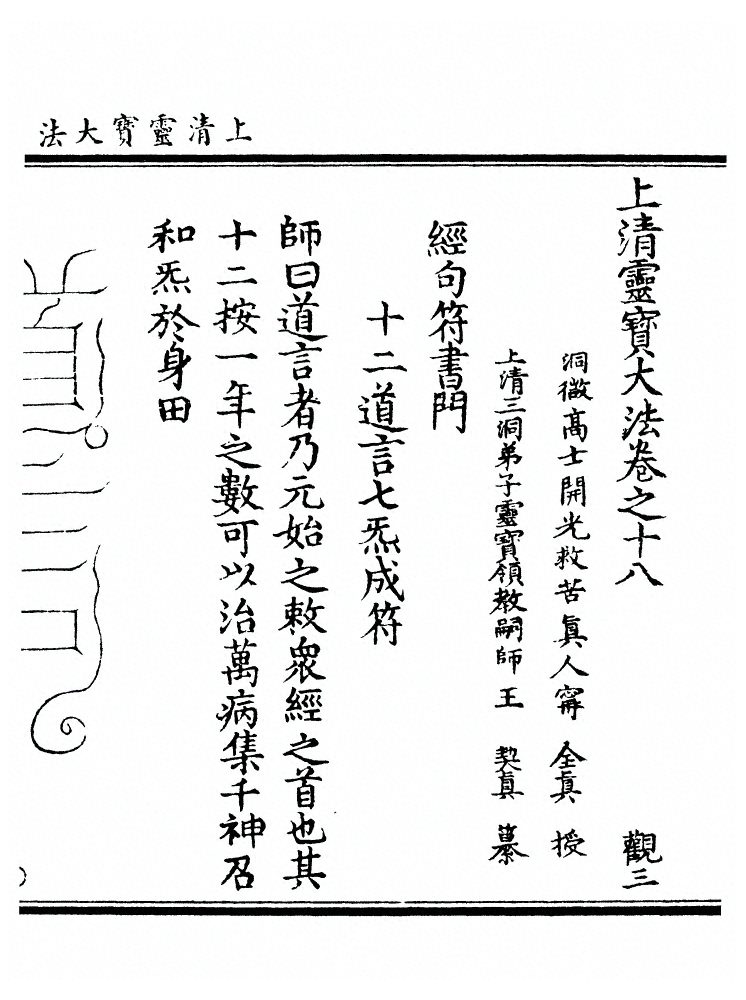 上清靈寶大法
上清靈寶大法卷之十八 觀三
洞微高士開光救苦眞人甯 全眞 授
上清三洞弟子靈寶領教嗣師王 契眞 纂
經句符書門
十二道言七炁成符
師曰道言者乃元始之敕衆經之首也其
十二按一年之數可以治萬病集千神召
和炁於身田